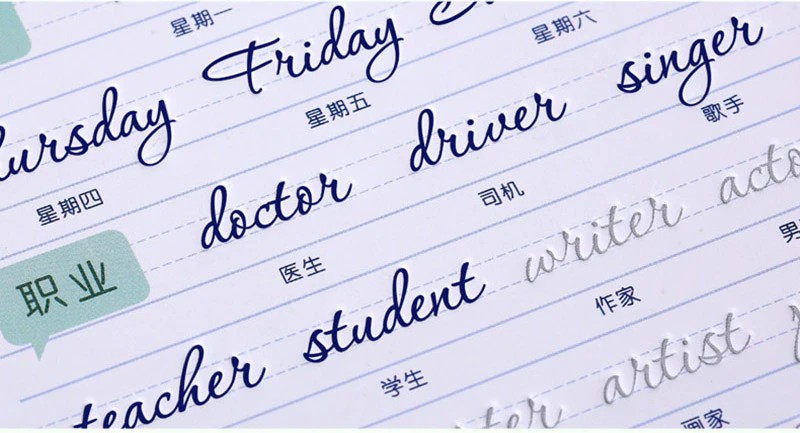 星期一
Friday
星期六
Thursday
星期五
星期四
doctor driver singer
医生 司机 歌手
职业
teacher student writer
学生 作家
artist
画家